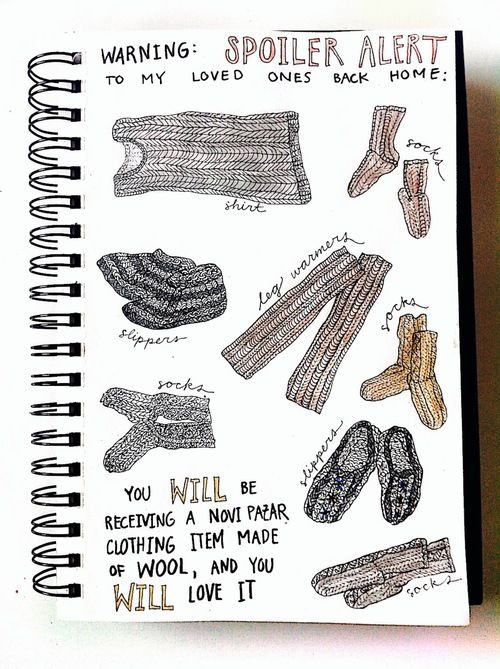 WARNING: SPOILER ALERT
TO MY LOVED ONES BACK HOME:
shirt
socks
slippers
leg warmers
socks
socks
slippers
YOU WILL BE
RECEIVING A NOVI PAZAR
CLOTHING ITEM MADE
OF WOOL, AND YOU
WILL LOVE IT
socks